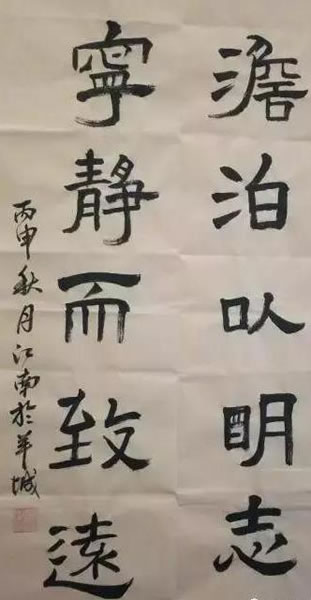 澹泊以明志
寧靜而致遠
丙申秋月江南於羊城